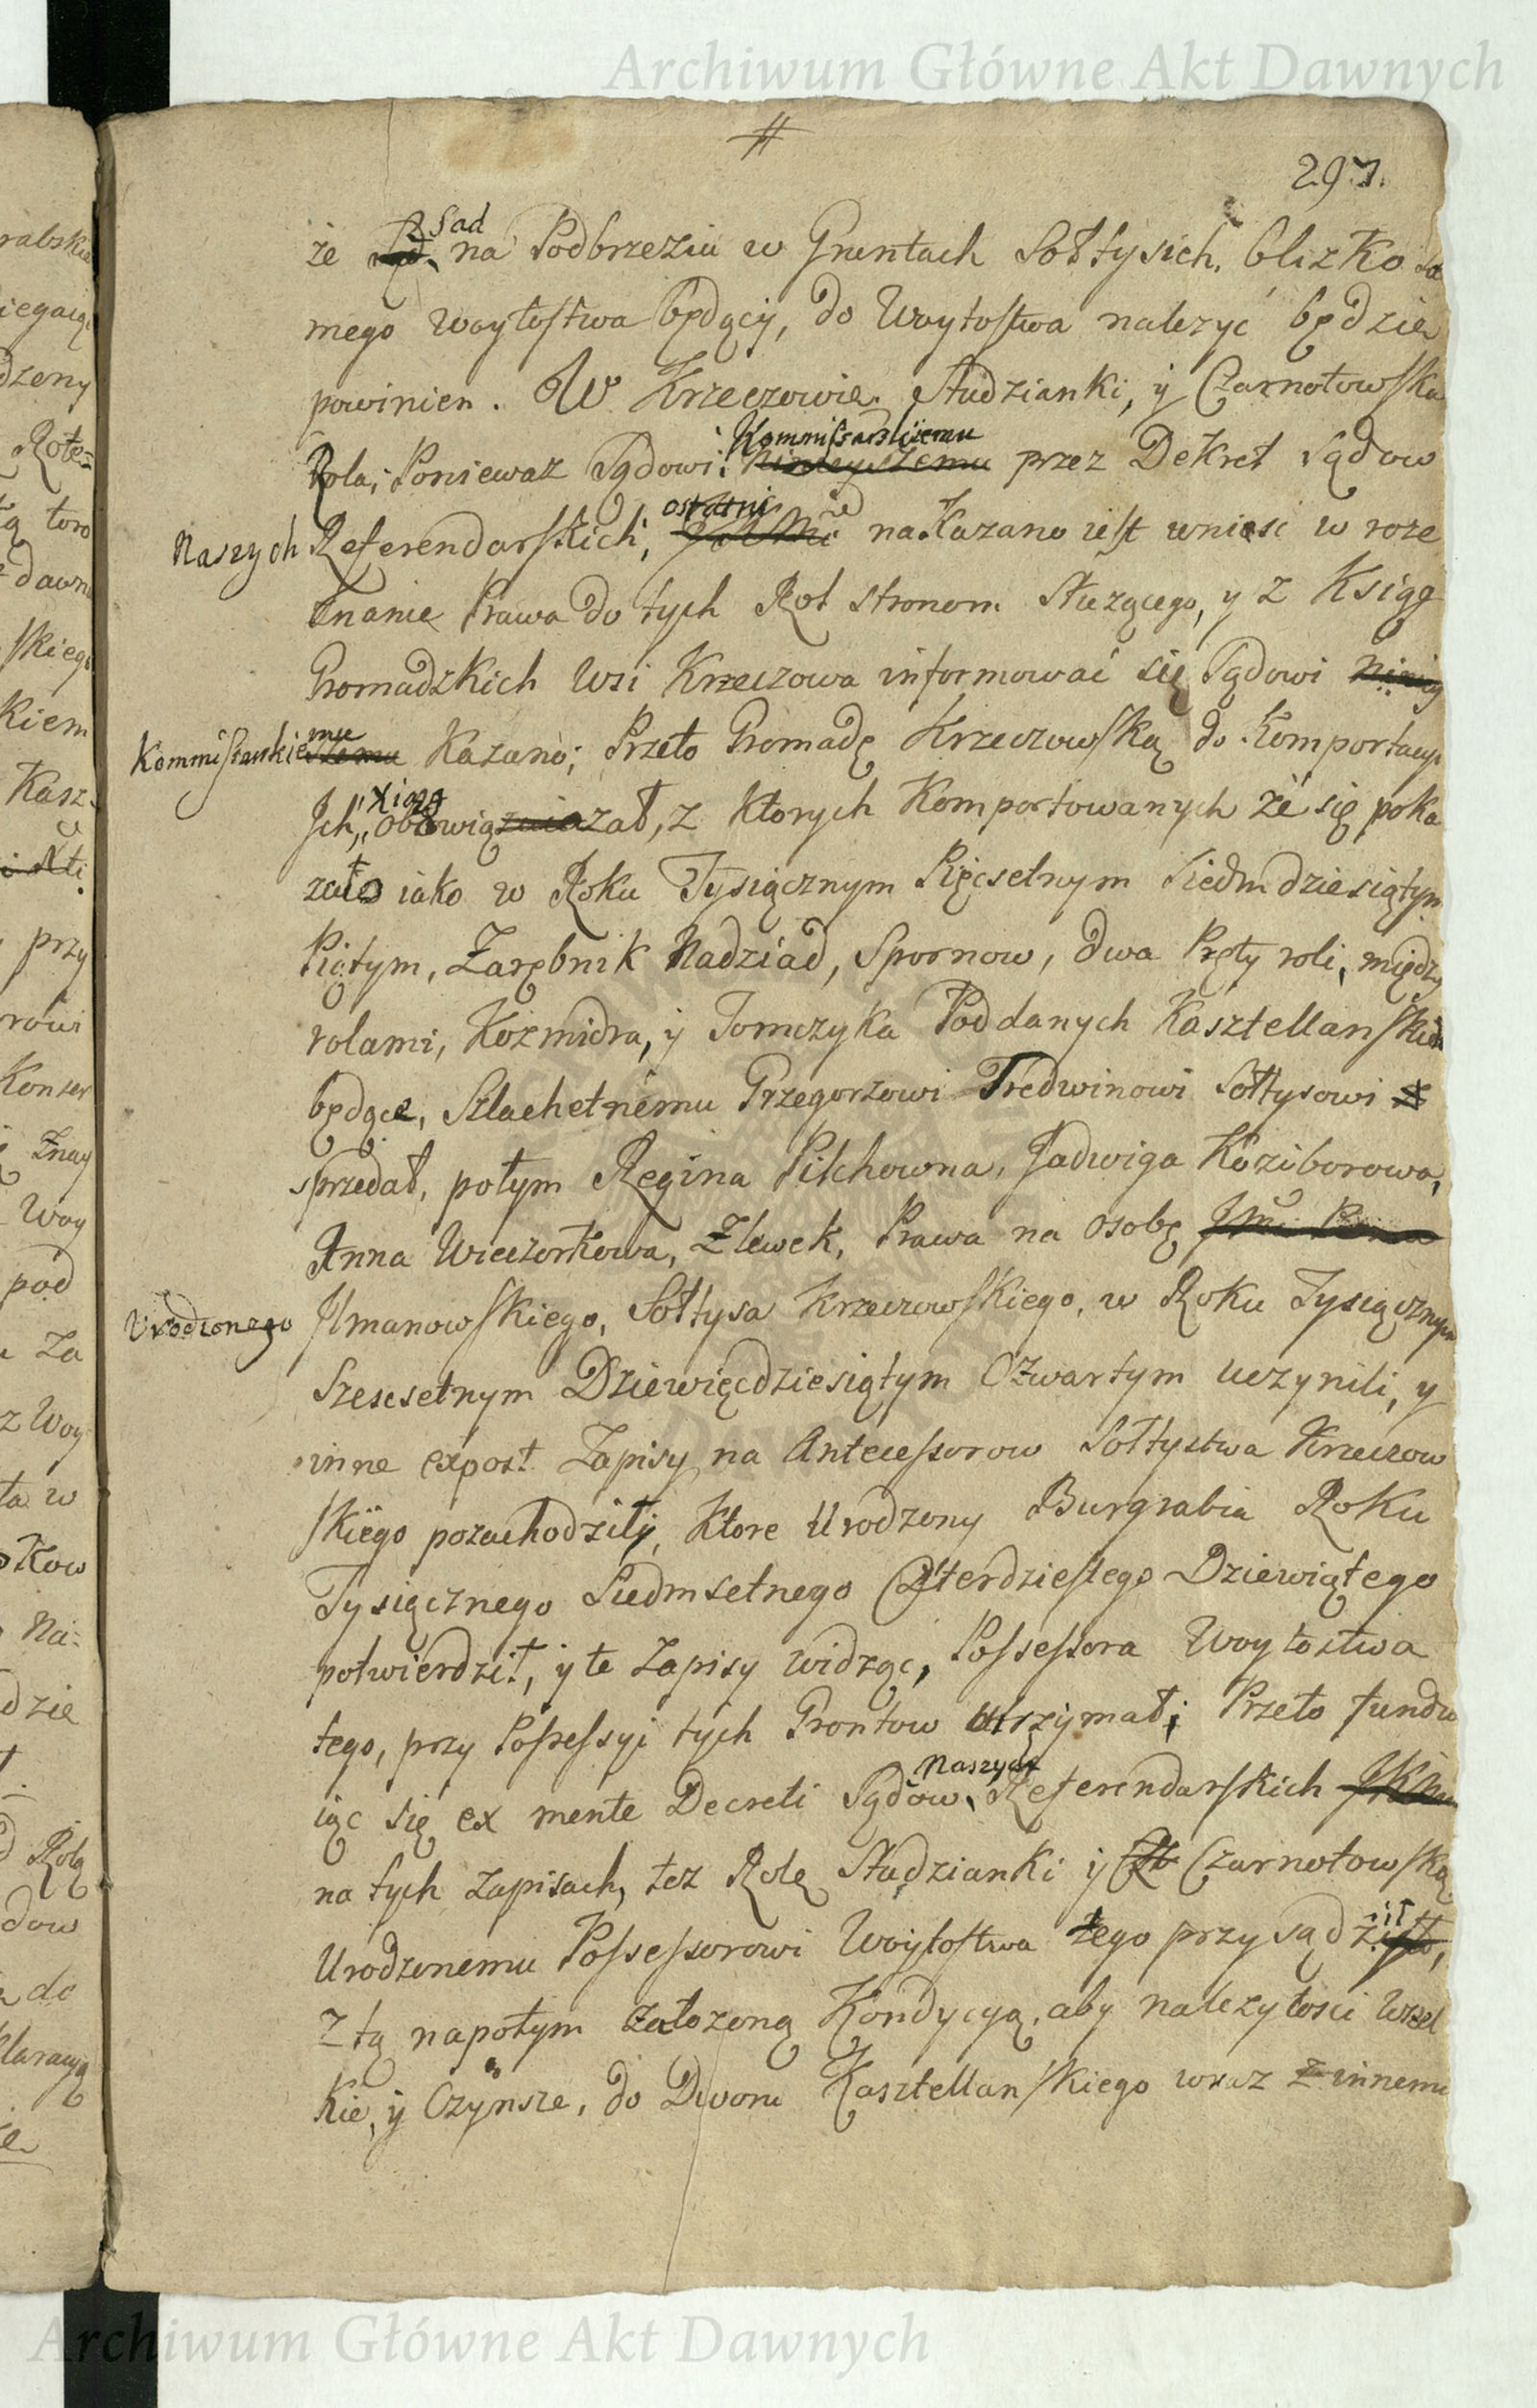 Archiwum Główne Akt Dawnych
297.
że Sad na Podbrzeziu w Gruntach Sołtysich, blizko sa
mego Woytostwa będący, do Woytostwa nalezyć będzie
powinien. W Krzeczowie Studzianki, y Czarnotowska
Rola; Poniewaz Sądowi Kommissarskiemu przez Dekret Sądow
Naszych Referendarskich, nakazano iest wniesć w roze
znanie Prawa do tych Rol stronom służącego, y z Ksiąg
Gromadzkich Wsi Krzeczowa informować się Sądowi
Kommissarskiemu Kazano; Przeto Gromadę Krzeczowską do Komportacyi
Jch Xiąg obowiązał, z ktorych Komportowanych że się poka
zało iako w Roku Tysiącznym Pięcsetnym Siedmdziesiątym
Piątym, Zarębnik Nadziád, Spornow, dwa Pręty roli, między
rolami, Koźmidra, y Tomczyka Poddanych Kasztellanskich
będące, Szlachetnému Grzegorzowi Tredwinowi Sołtysowi
sprzedał, potym Regina Pilchowna, Jadwiga Koziborowa,
Anna Wieczorkowa, Zlewek, Prawa na Osobę
Urodzonego Jlmanowskiego, Sołtysa Krzeczowskiego, w Roku Tysiącznym
Szescsetnym Dziewięcdziesiątym Czwartym uczynili, y
inne expost Zapisy na Antecessorow Sołtystwa Krzeczow
skiego pozachodziły, ktore Urodzony Burgrabia Roku
Tysiącznego Siedmsetnego Czterdziestego Dziewiątego
potwierdził, y te Zapisy widząc, Possessora Woytostwa
tego, przy Possessyi tych Grontow utrzymał; Przeto fundu
iąc się ex mente Decreti Sądow Naszych Referendarskich
na tych Zapisach, tez Rolę Studzianki y Czarnotowską
Urodzonemu Possessorowi Woytostwa tego przysądził,
Z tą napotym załozoną Kondycyą, aby nalezytosci wszel
kie, y Czynsze, do Dworu Kasztellanskiego wraz z innemi
Archiwum Główne Akt Dawnych